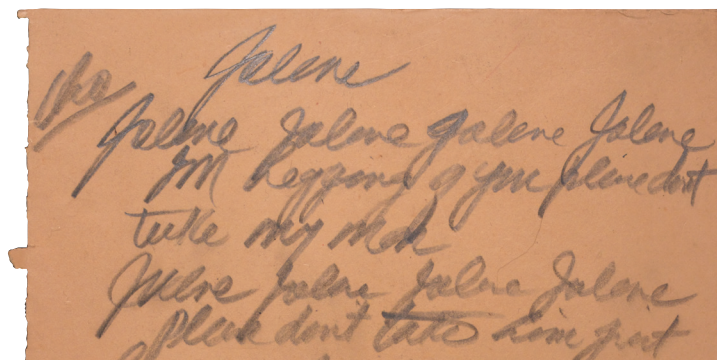 Jolene
Cho
Jolene Jolene Jolene Jolene
I'M begging of you please dont
take my man
Jolene Jolene Jolene Jolene
please dont take him just